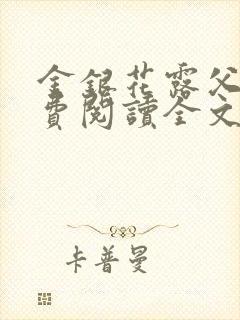 金銀花露父
費閱讀全文
卡普曼